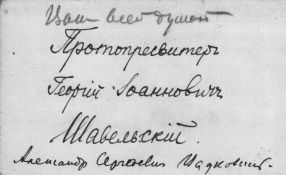 Ваш всей душой
Протопресвитеръ
Георгій Іоанновичъ
Шавельскій.
Александр Сергеевич Шадковский.